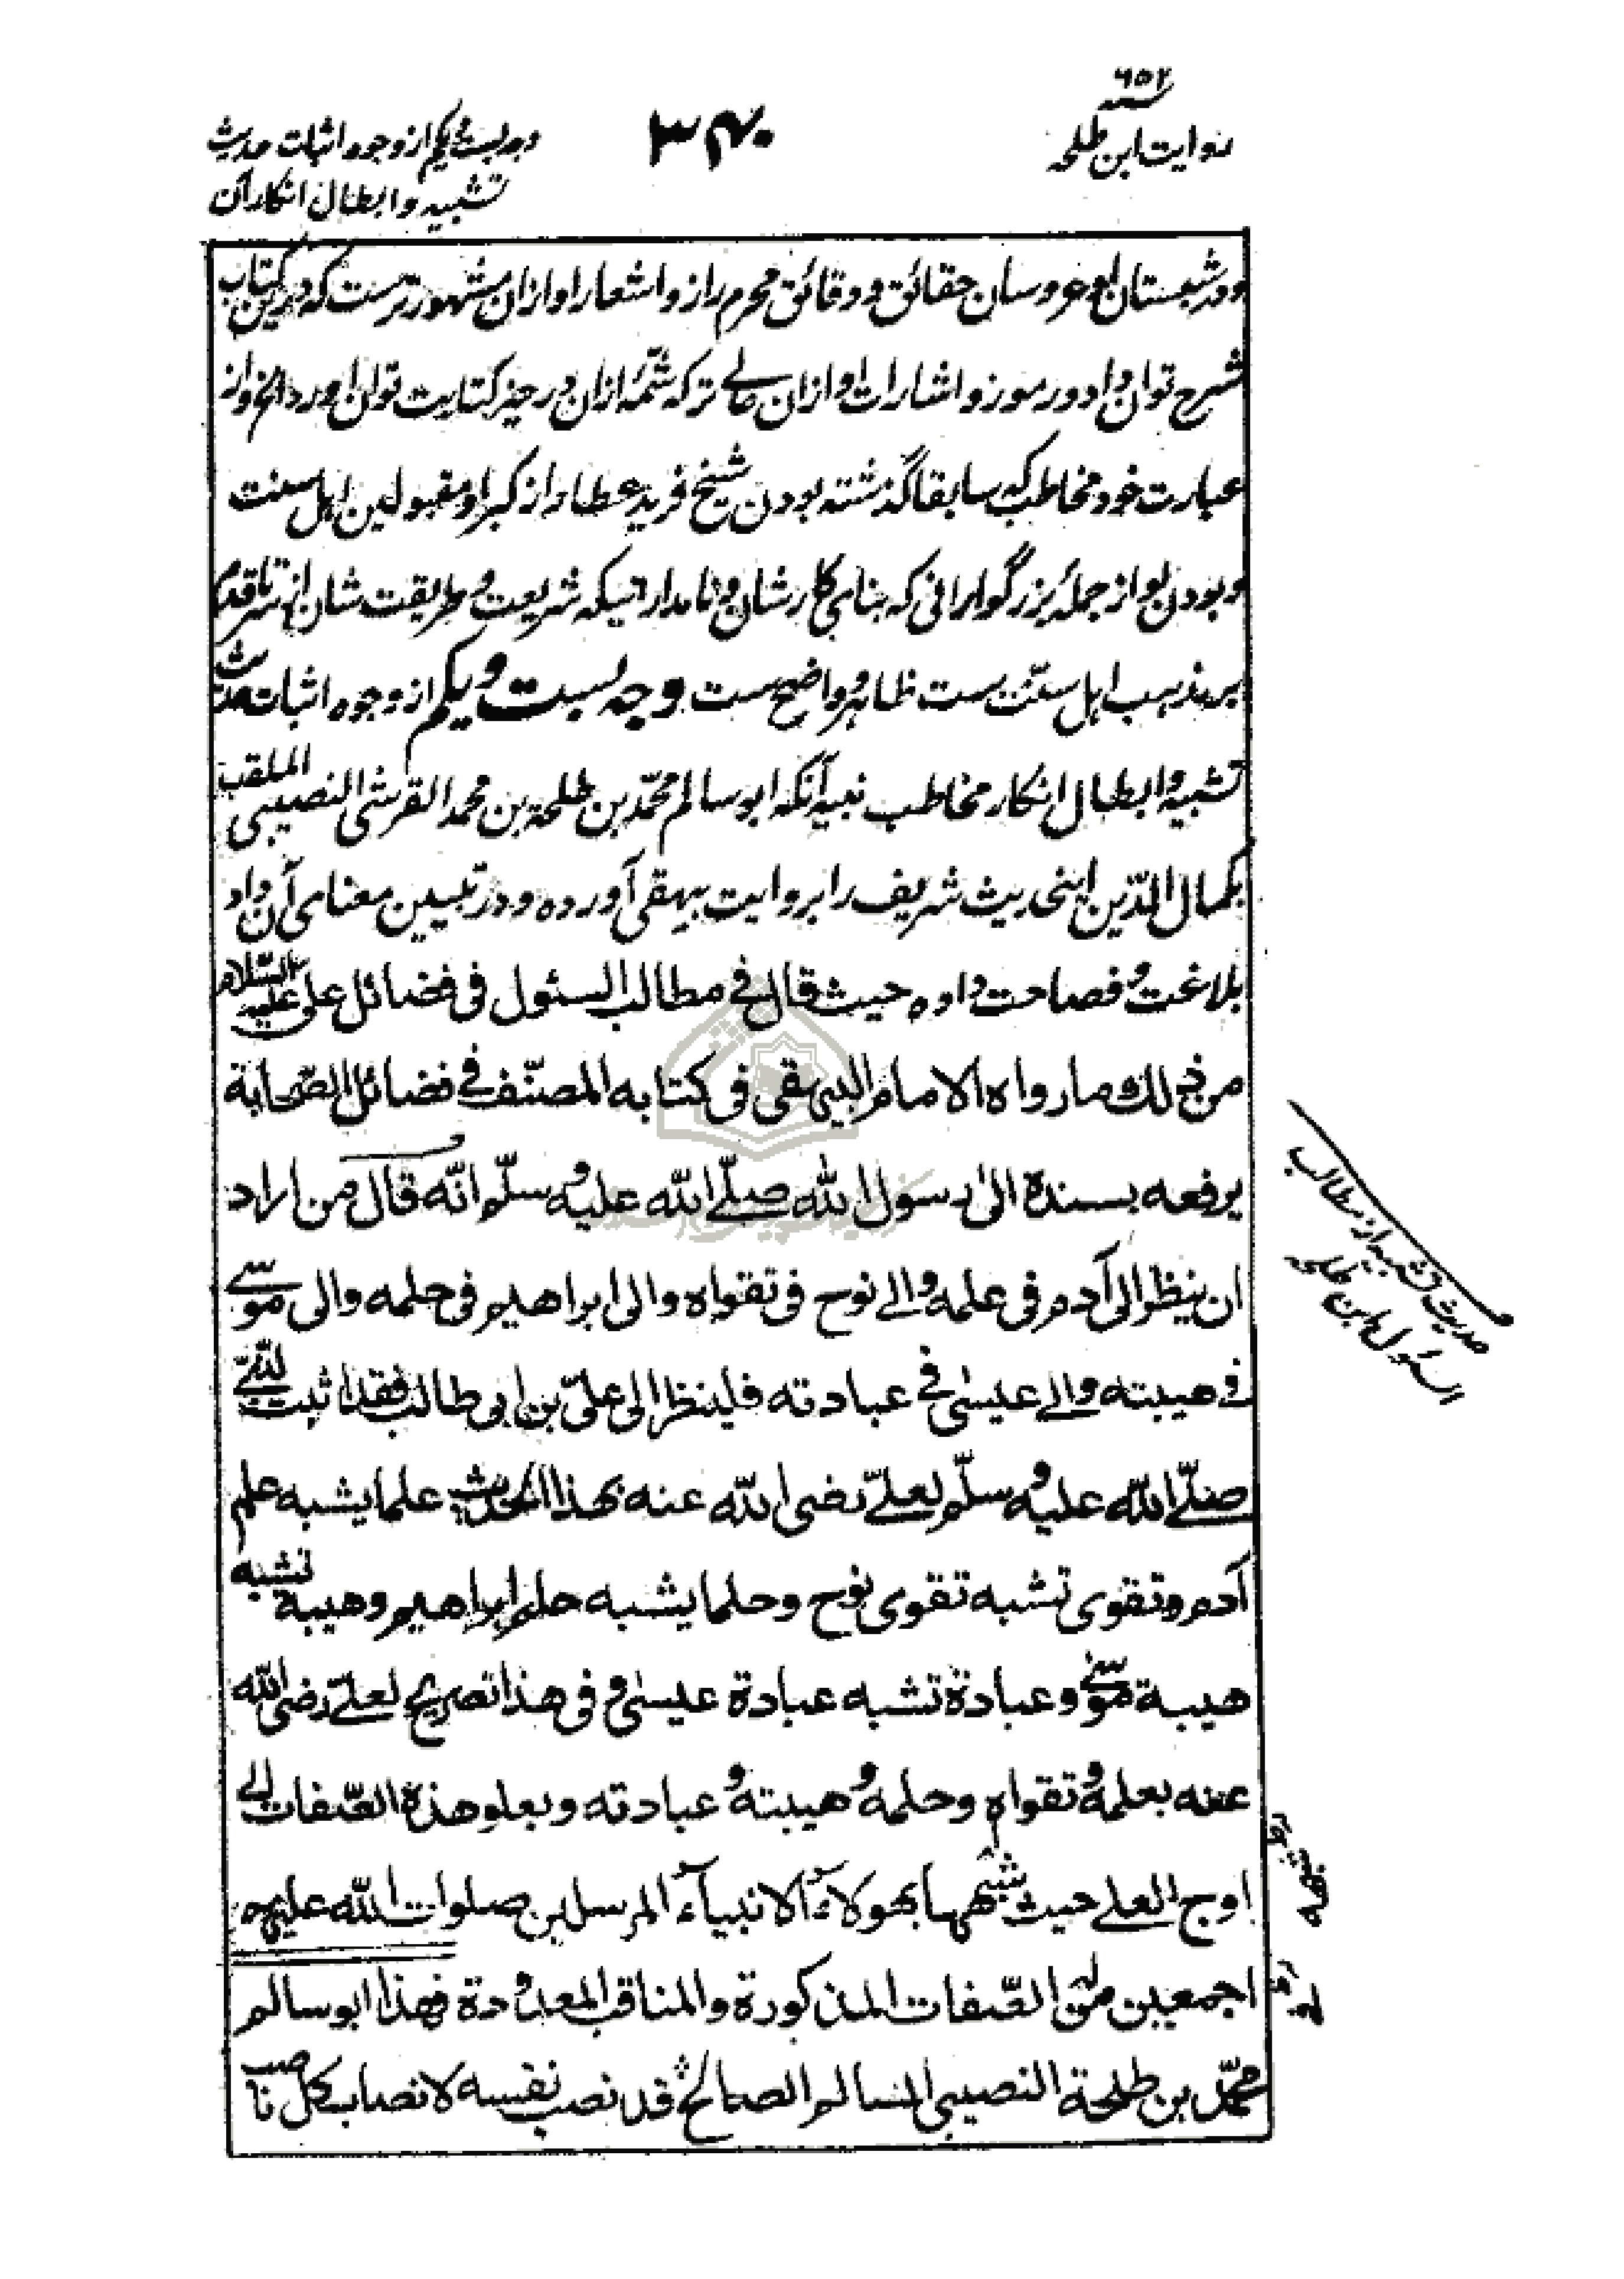 ۶۵۲
روایت ابن طلحه
۳۴۰
وجه بست و یکم از وجوه اثبات حدیث
تشبیه و ابطال انکار آن
و در شبستان او عروسان حقائق و دقائق محرم راز و اشعار او ازان مشهورترست که درین کتاب
شرح توان داد و رموز و اشارات او ازان عالے تر که شمّهٔ ازان در حیز کتابت توان آورد الخ و از
عبارت خود مخاطب که سابقا گذشته بودن شیخ فرید عطار از کبرا و مقبولین اهل سنت
و بودن او از جملهٔ بزرگوارانی که بنای کار شان و نامداریکه شریعت و طریقت شان از سر تا قدم
بر مذهب اهل سنّت ست ظاهر و واضح ست وجه بست و یکم از وجوه اثبات حدیث
تشبیه و ابطال انکار مخاطب نبیه آنکه ابو سالم محمّد بن طلحة بن محمد القرشی النصیبی الملقب
بکمال الدّین این حدیث شریف را بروایت بیهقی آورده و در تبیین معنای آن داد
بلاغت و فصاحت داده حیث قال فی مطالب السئول فی فضائل علی علیه السّلام
من ذلك ما رواه الامام البیهقی فی کتابه المصنّف فے فضائل الصّحابة
یرفعه بسنده الی رسول الله صلّے الله علیه و سلّم انّه قال من اراد
ان ینظر الی آدم فی علمه والے نوح فی تقواه والی ابراهیم فی حلمه والی موسے
فے هیبته والے عیسی فے عبادته فلینظر الی علیّ بن ابی طالب فقد اثبت النّبیّ
صلّے الله علیه و سلّم لعلیّ رضی الله عنه بهذا الحدیث علما یشبه علم
آدم و تقوی تشبه تقوی نوح و حلما یشبه حلم ابراهیم و هیبة تشبه
هیبة موسے و عبادة تشبه عبادة عیسی و فی هذا تصریح لعلیّ رضی الله
عنه بعلمه و تقواه و حلمه و هیبته و عبادته و بعلو هذه الصّفات الے
اوج العلے حیث شبّهها بهولاء الانبیآء المرسلین صلوات الله علیهم
اجمعین من الصّفات المذکورة والمناقب المعدودة فهذا ابو سالم
محمّد بن طلحة النصیبی السالم الصالح قد نصب نفسه لانصاب کل ناصب
حدیث تشبیه از مطالب
السئول ابن طلحه
شبهه